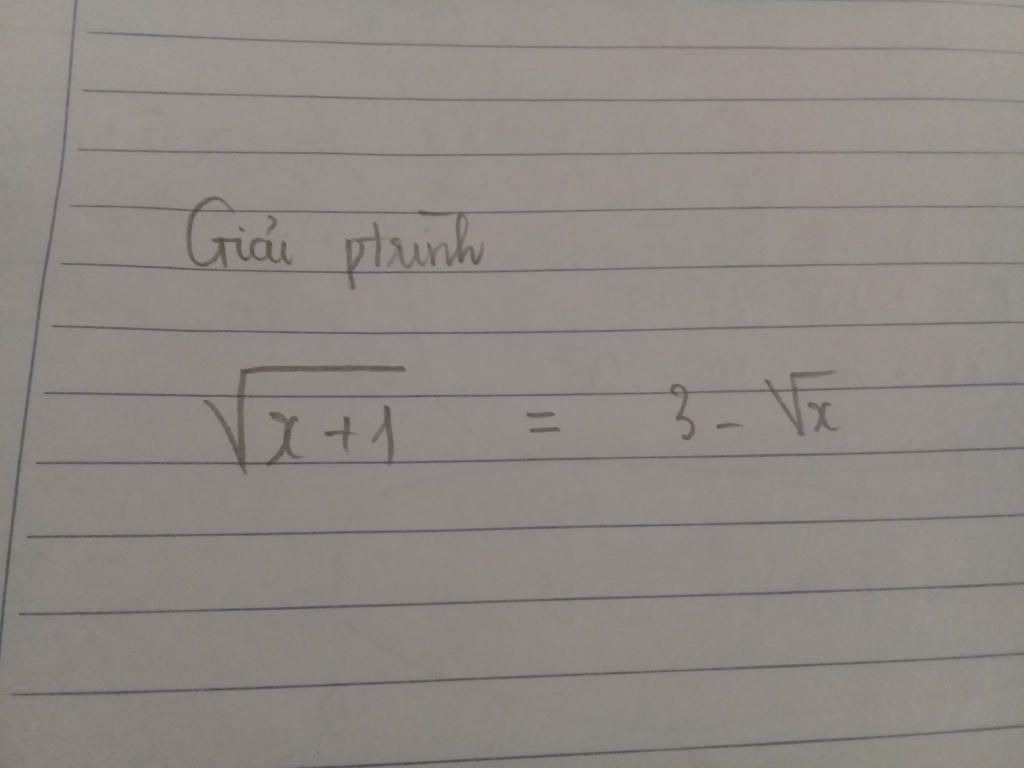 Giải ptrình
√(x+1) = 3 - √x